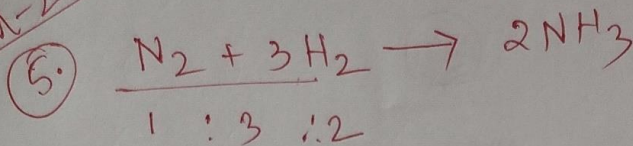 5. N₂ + 3H₂ → 2NH₃
1 : 3 : 2